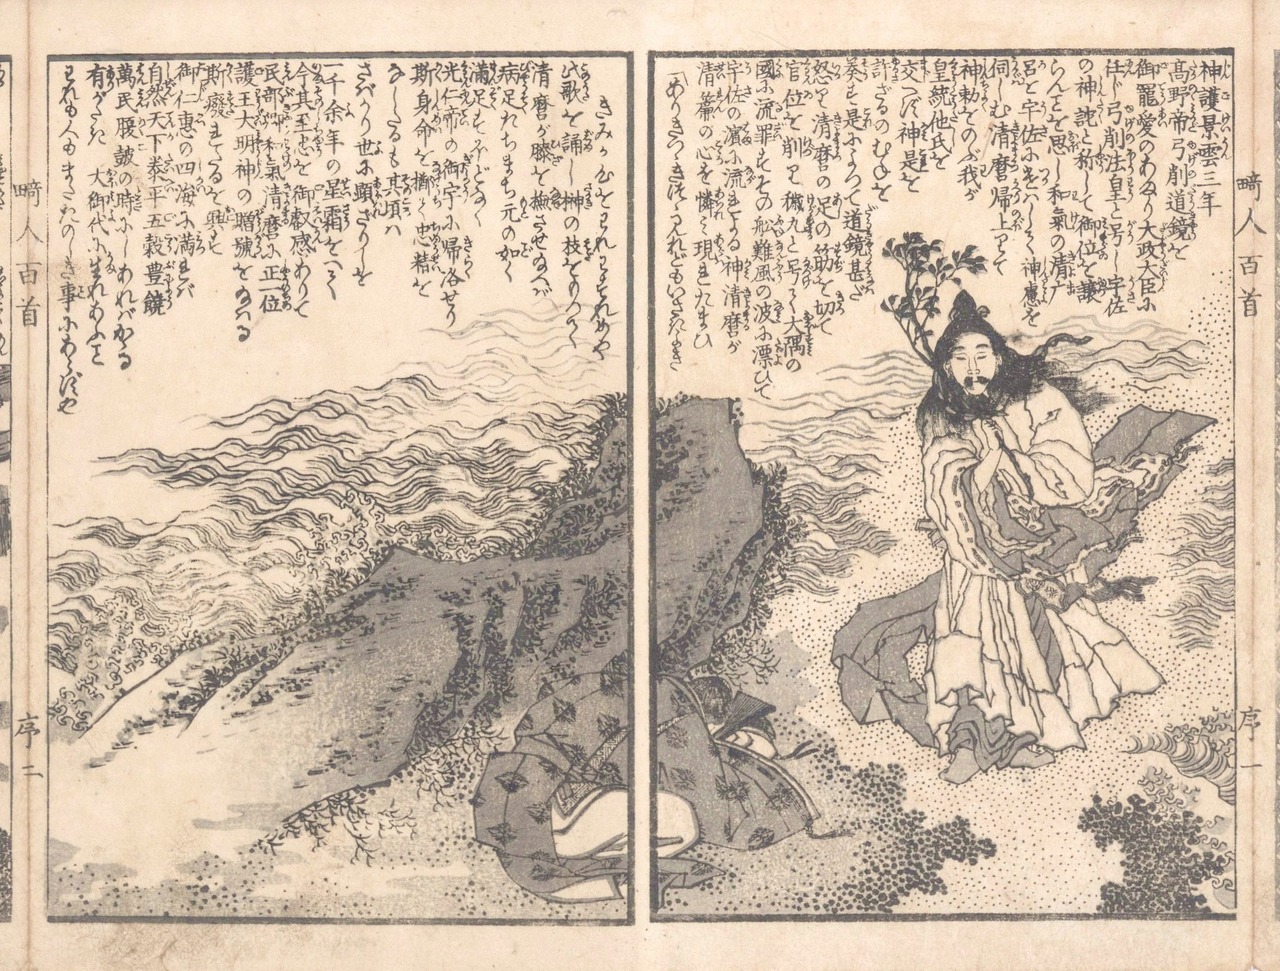 神護景雲三年
高野帝弓削道鏡を
御寵愛のあまり大政大臣に
任じ弓削法皇と号し宇佐
の神託と称して御位を譲
らんと思し和氣の清麿
呂を宇佐につかはして神慮を
伺しむ清麿帰上りて
神勅をのべ我が
皇統他氏を
交へば神是を
許ざるのむねを
奏す是によつて道鏡甚だ
怒り清麿の足の筋を切て
官位を削り穢丸と号て大隅の
國に流罪すその船難風の波に漂ひて
宇佐の濱に流れよる神清麿が
清簾の心を憐み現れたまひ
ありきつゝきつゝ見れどもいさぎよき
きみが心をわれわすれめや
此歌を誦し榊の枝をもつて
清麿が膝を撫させ給へば
病足たちまち元の如く
満足もほどなく
光仁帝の御宇に帰洛せり
斯身命を擲て忠精を
なしたるも其頃は
さばかり世に顕ざりしを
一千余年の星霜をへて
今其至忠を御叡感ありて
民部卿和氣清麿に正一位
護王大明神の贈號を給はる
斯癈すたるを興し
御仁恵の四海に満れば
自然天下泰平五穀豊饒
萬民腹皷の時にしあればかゝる
有がたき大御代に生れあふこと
われも人もまたたのしき事にあらずや
畸人百首
序一
畸人百首
序二